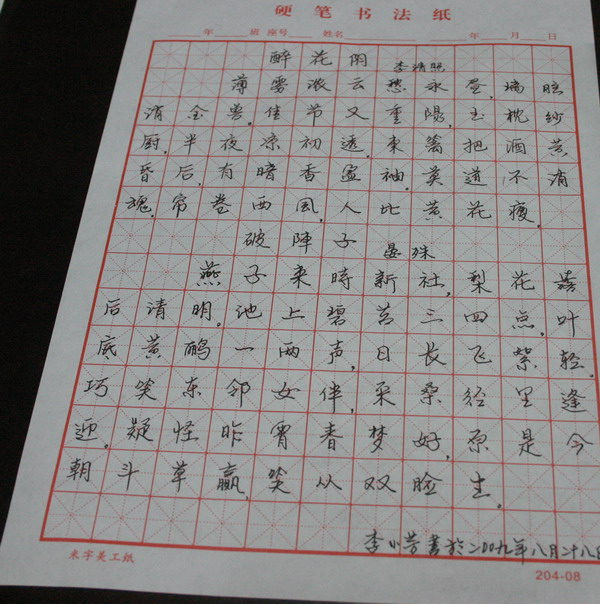 硬笔书法纸
年 班 座号 姓名 年 月 日
醉花阴 李清照
薄雾浓云愁永昼,瑞脑
消金兽,佳节又重阳,玉枕纱
厨,半夜凉初透,東篱把酒黄
昏后,有暗香盈袖,莫道不消
魂,帘卷西风,人比黄花瘦,
破陣子 晏殊
燕子来時新社,梨花落
后清明。池上碧苔三四点,叶
底黄鹂一两声,日长飞絮轻。
巧笑东邻女伴,采桑径里逢
迎,疑怪昨宵春梦好,原是今
朝斗草赢,笑从双脸生。
李小芳書於二00九年八月二十八日
米字美工纸
204-08